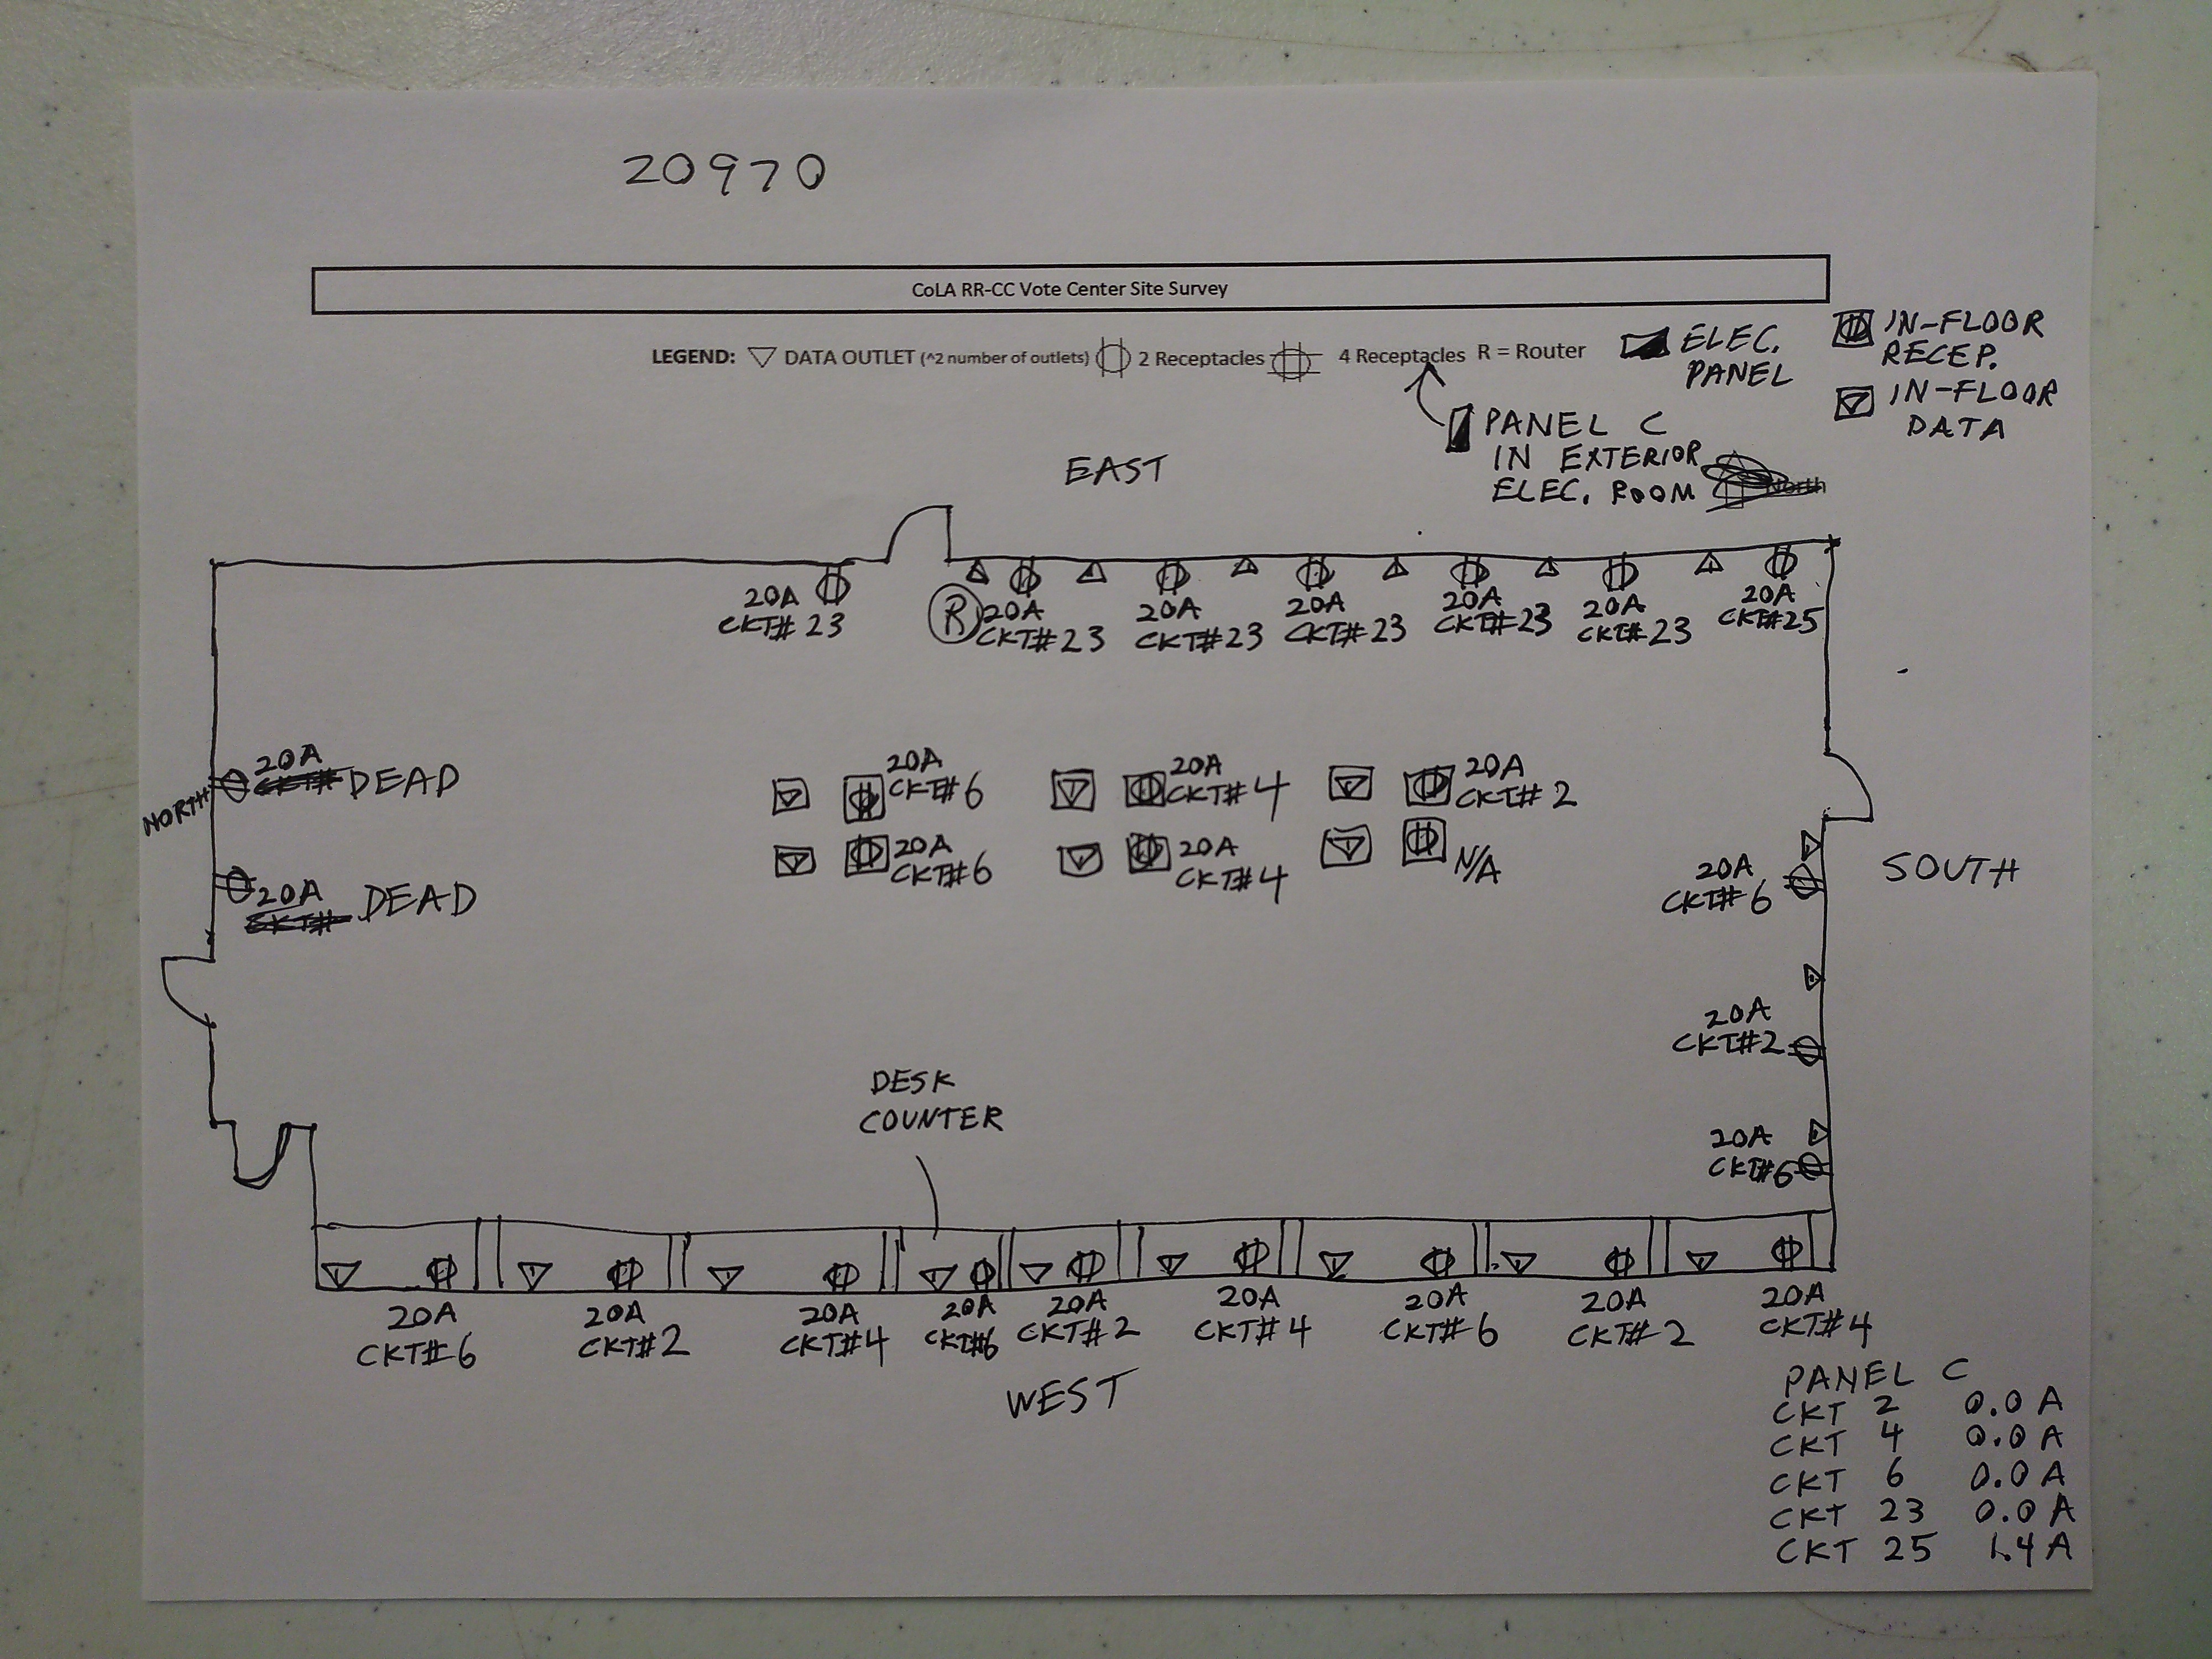 20970
CoLA RR-CC Vote Center Site Survey
LEGEND: DATA OUTLET (^2 number of outlets) 2 Receptacles 4 Receptacles R = Router
ELEC.
PANEL
IN-FLOOR
RECEP.
IN-FLOOR
DATA
PANEL C
IN EXTERIOR
ELEC. ROOM
North
EAST
20A
CKT# 23
R
20A
CKT# 23
20A
CKT# 23
20A
CKT# 23
20A
CKT# 23
20A
CKT# 23
20A
CKT# 25
NORTH
20A
CKT# DEAD
20A
CKT# DEAD
20A
CKT# 6
20A
CKT# 4
20A
CKT# 2
20A
CKT# 6
20A
CKT# 4
N/A
SOUTH
20A
CKT# 6
20A
CKT# 2
20A
CKT# 6
DESK
COUNTER
20A
CKT# 6
20A
CKT# 2
20A
CKT# 4
20A
CKT# 6
20A
CKT# 2
20A
CKT# 4
20A
CKT# 6
20A
CKT# 2
20A
CKT# 4
WEST
PANEL C
CKT 2 0.0 A
CKT 4 0.0 A
CKT 6 0.0 A
CKT 23 0.0 A
CKT 25 1.4 A